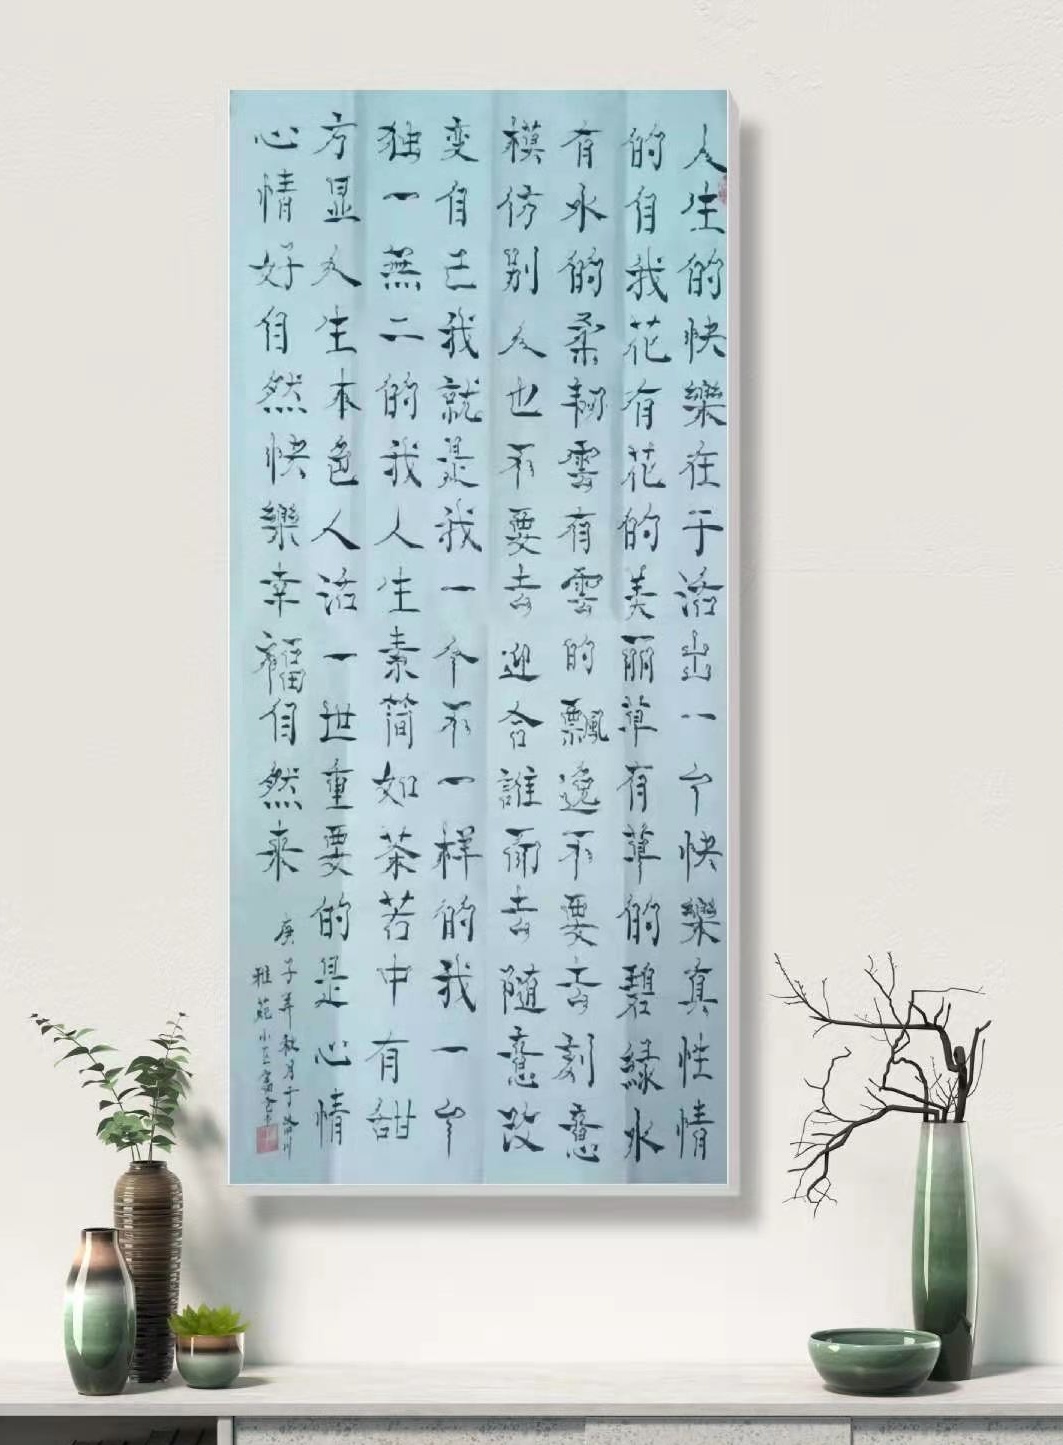 人生的快樂在于活出一个快樂真性情
的自我花有花的美丽草有草的碧綠水
有水的柔韧雲有雲的飄逸不要去刻意
模仿别人也不要去迎合誰而去随意改
变自己我就是我一个不一样的我一个
独一無二的我人生素简如茶若中有甜
方显人生本色人活一世重要的是心情
心情好自然快樂幸福自然来
庚子年秋月于
雅苑小区